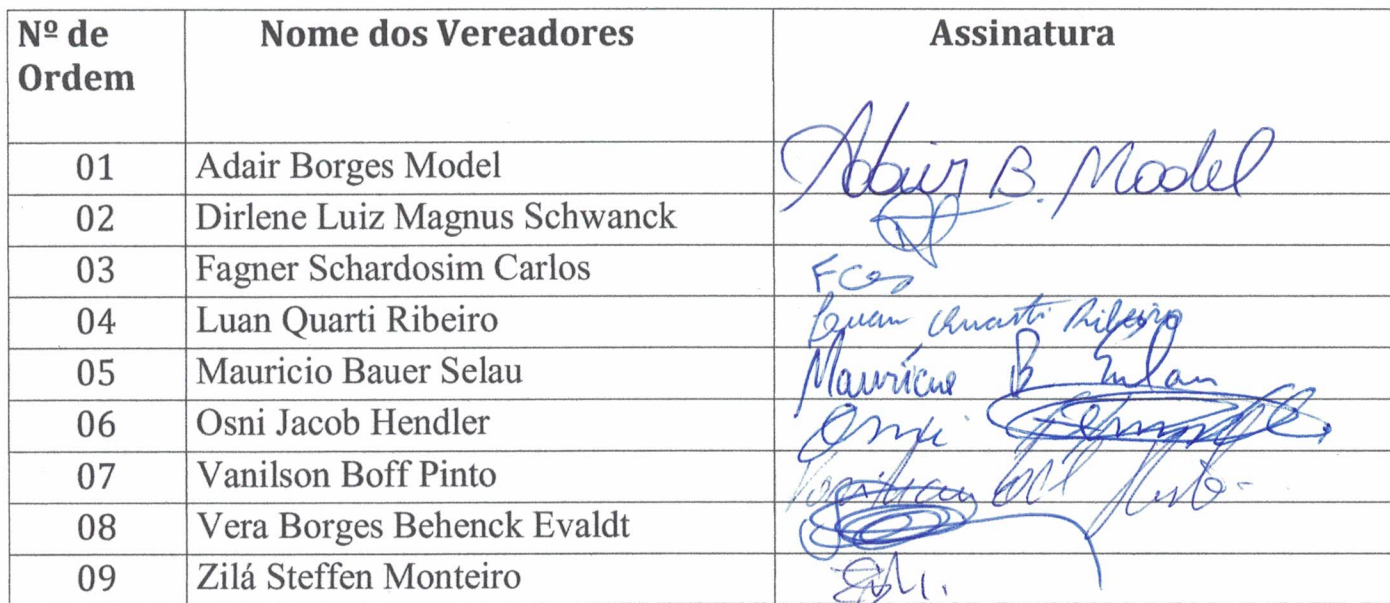 Nº de Ordem Nome dos Vereadores Assinatura
01 Adair Borges Model Adair B. Model
02 Dirlene Luiz Magnus Schwanck
03 Fagner Schardosim Carlos
04 Luan Quarti Ribeiro Luan Quarti Ribeiro
05 Mauricio Bauer Selau Maurício B Selau
06 Osni Jacob Hendler Osni
07 Vanilson Boff Pinto
08 Vera Borges Behenck Evaldt
09 Zilá Steffen Monteiro